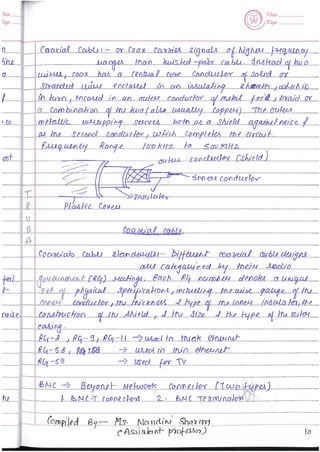 Coaxial Cable:- or Coax carries signals of higher frequency
ranges than twisted-pair cable. Instead of two
wires, coax has a central core conductor of solid or
stranded wire enclosed in an insulating sheath, which is
in turn, encased in an outer conductor of metal foil, braid or
a combination of the two (also usually copper). The outer
metallic wrapping serves both as a shield against noise &
as the second conductor, which completes the circuit.
Frequency Range 100 KHz to 500 MHz
outer conductor (shield)
Inner conductor
Insulator
Plastic Cover
Coaxial cable
Coaxial cable standards:- Different coaxial cable designs
are categorized by their radio
government (RG) ratings. Each RG number denotes a unique
set of physical specifications, including the wire gauge of the
inner conductor, the thickness & type of the inner insulator, the
construction of the shield, & the size & the type of the outer
casing.
RG-8, RG-9, RG-11 → used in thick ethernet
RG-58, → used in thin ethernet
RG-59 → used for TV
BNC → Bayonet Network Connector (Two types)
1. BNC-T connectors 2. BNC Terminators
Compiled By:- Ms. Nandini Sharma
(Assistant professor)
10